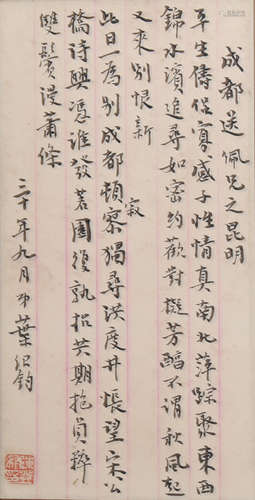 成都送佩兄之昆明
平生儔侶寡感子性情真南北萍踪聚東西
錦水濱追尋如密約歡對擬芳醕不謂秋風起
又來別恨新
此日一為別成都頓寂寥獨尋洪度井悵望宋公
橋詩興憑誰發茗園復孰招共期抱貞粹
雙鬢漫蕭條
三十年九月葉紹鈞